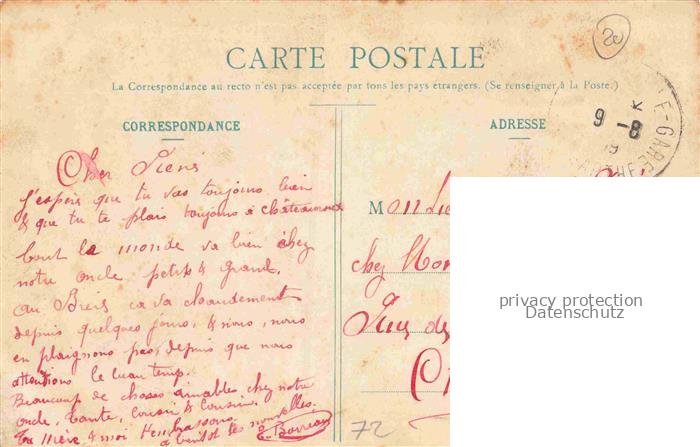 CARTE POSTALE
La Correspondance au recto n'est pas acceptée par tous les pays étrangers. (Se renseigner à la Poste.)
CORRESPONDANCE
Cher
J'espère que tu vas toujours bien
& que tu te plais toujours à Châteauroux
tout le monde va bien chez
notre oncle petits & grands.
au ça va chaudement
depuis quelques jours, & nous, nous
en plaignons pas, depuis que nous
attendions le beau temp.
Beaucoup de choses aimables chez notre
oncle, tante, cousin & cousine.
Ta Mère & moi t'embrassons.
a bientôt tes nouvelles.
ADRESSE
M
chez
Rue des
20
9 - 8
E-GARE
72
privacy protection
Datenschutz